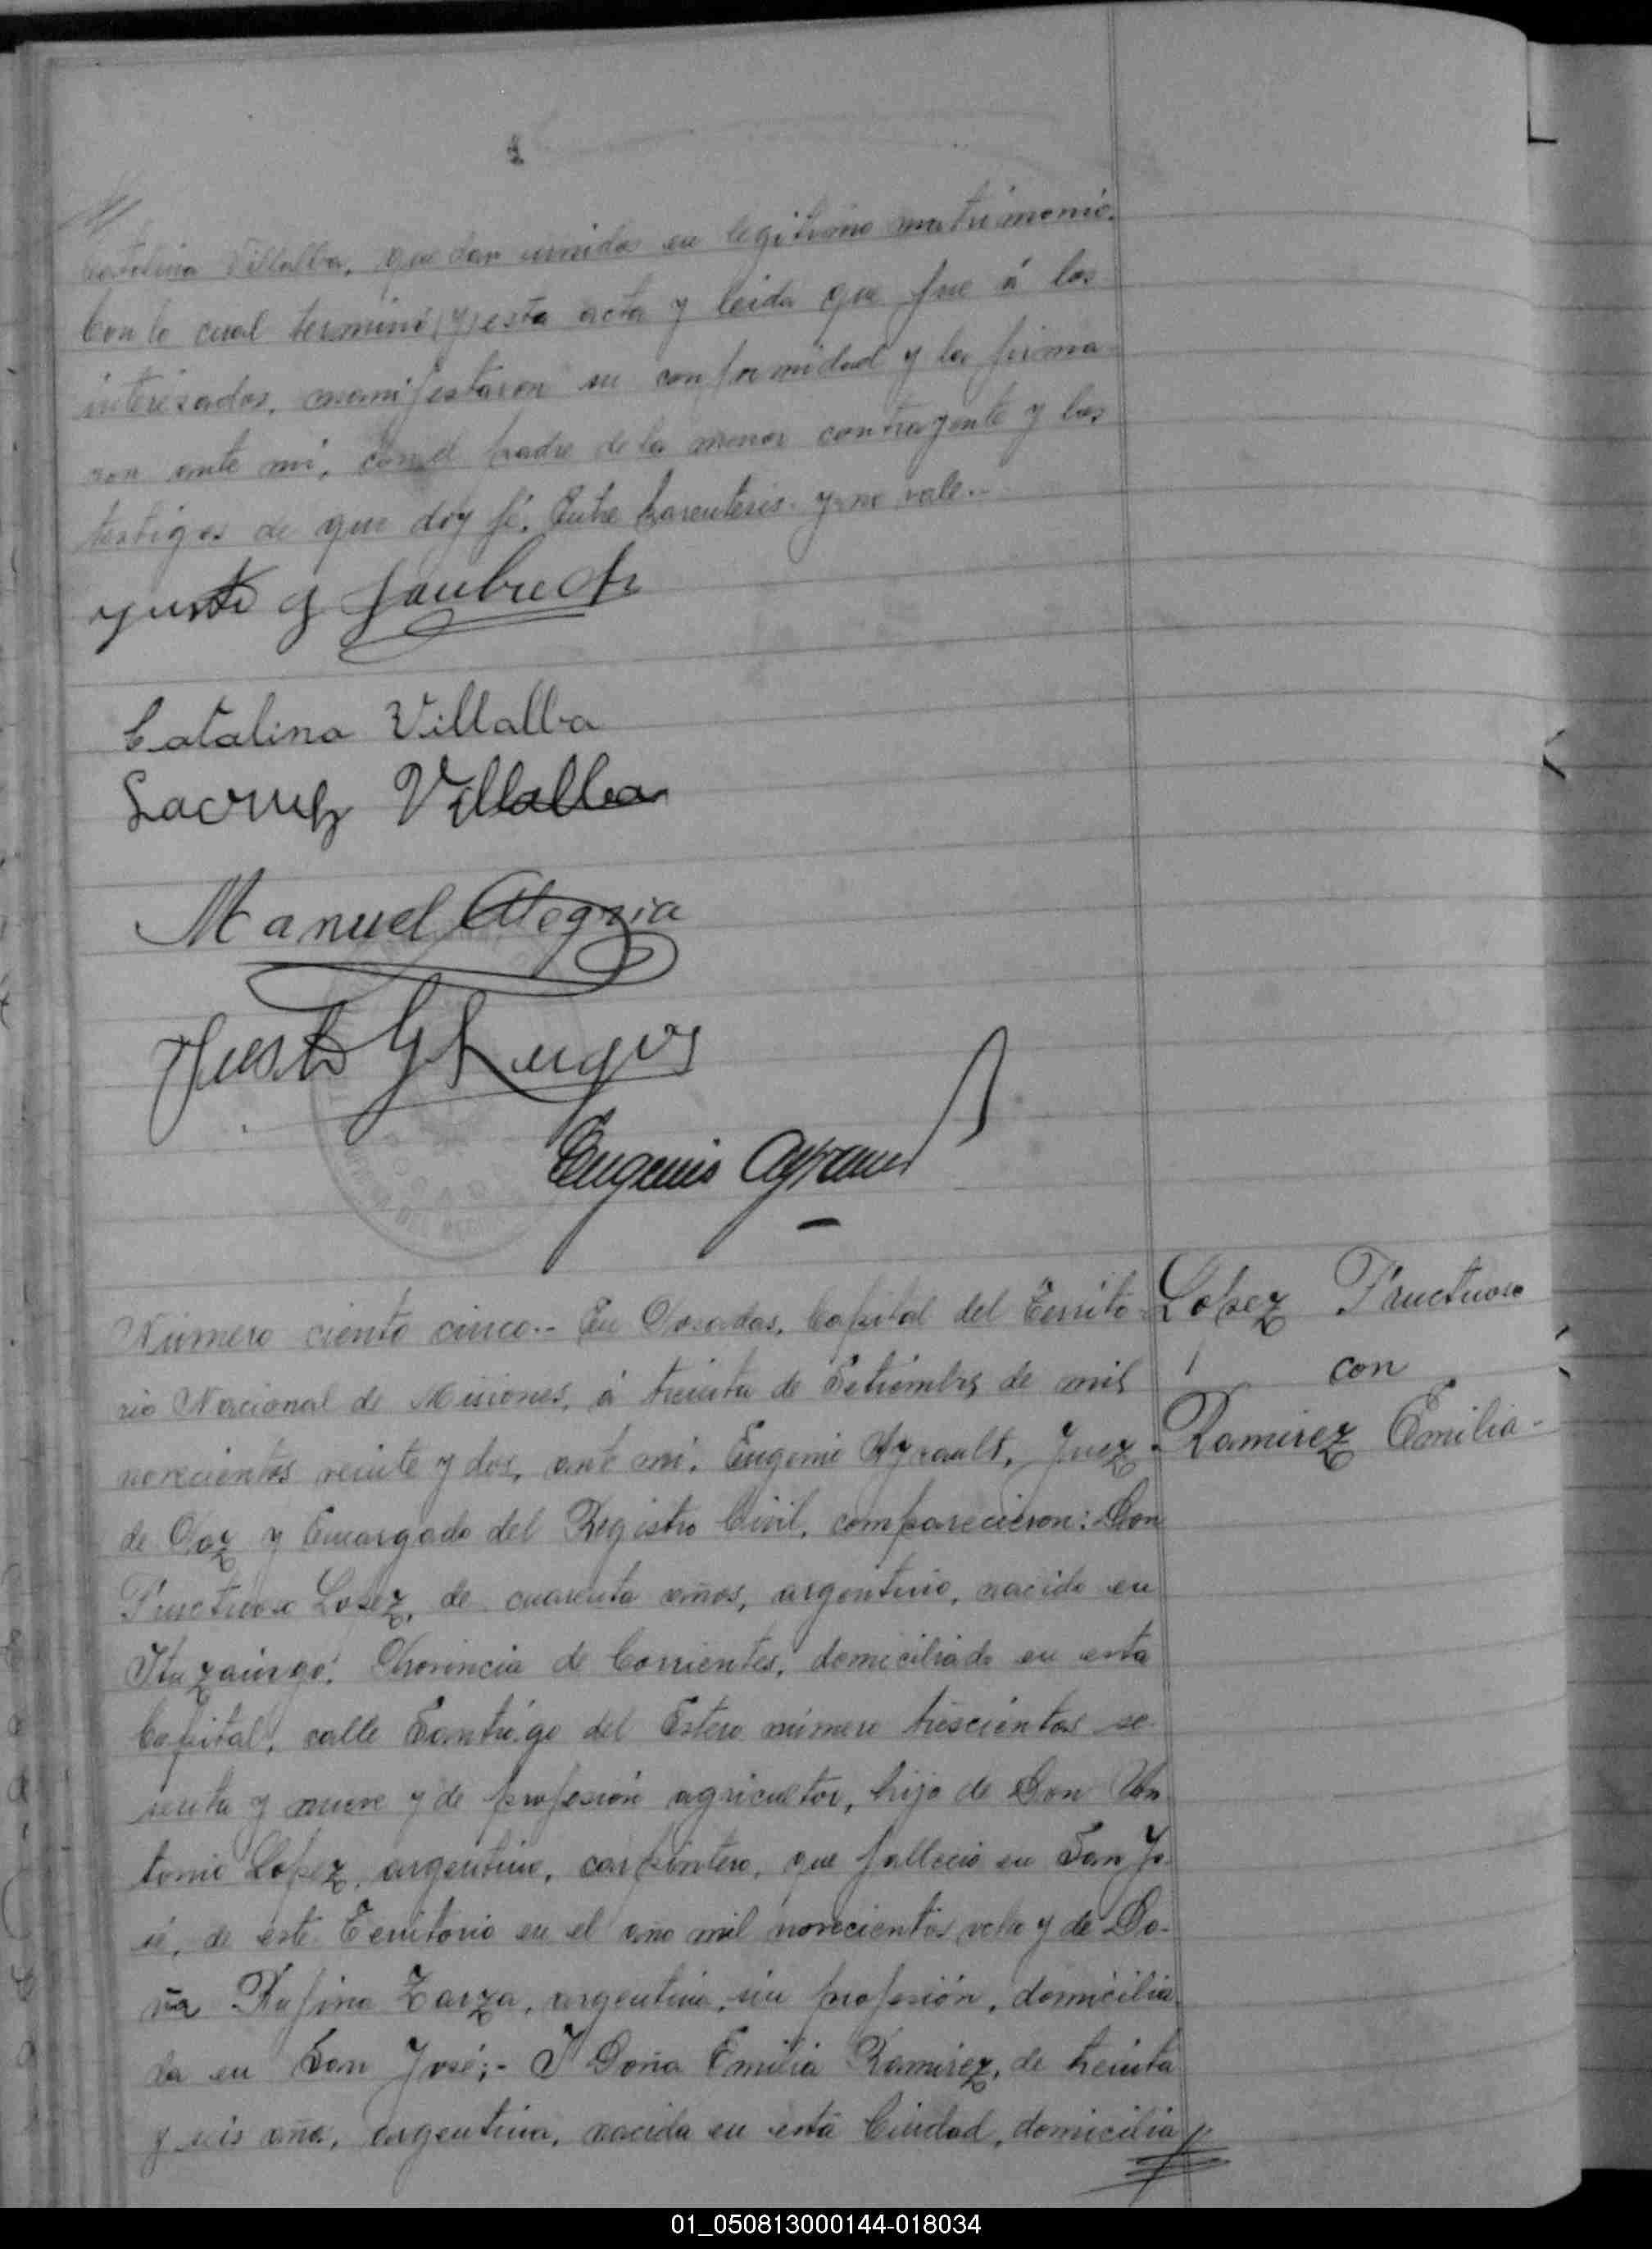 Catalina Villalba, quedan unidos en legitimo matrimonio.
Con lo cual terminó (y) esta acta y leida que fue á los
interesados, manifestaron su conformidad y la firma-
ron ante mi, con el padre de la menor contrayente y los
testigos de que doy fé. Entre parentesis- y- no vale.-
Justo G
Catalina Villalba
Lacruz Villalba
Manuel Alegria
Justo G Lugos
Eugenio Ayrault
Número ciento cinco.- En Posadas, Capital del Territo-
López Fructuoso
rio Nacional de Misiones, á treinta de Setiembre de mil
con
novecientos veinte y dos, ante mi, Eugenio Ayrault, Juez
Ramirez Emilia-
de Paz y Encargado del Registro Civil, comparecieron: Don
Fructuoso Lopez, de cuarenta años, argentino, nacido en
Ituzaingó, Provincia de Corrientes, domiciliado en esta
Capital, calle Santiágo del Estero número trescientos se-
senta y nueve y de profesión agricultor, hijo de Don An-
tonio Lopez, argentino, carpintero, que falleció en San Jo-
sé, de este Territorio en el año mil novecientos ocho y de Do-
ña Rufina Zarza, argentina, sin profesión, domicilia-
da en San José;- Y Doña Emilia Ramirez, de treinta
y seis años, argentina, nacida en esta Ciudad, domicilia
01_050813000144-018034